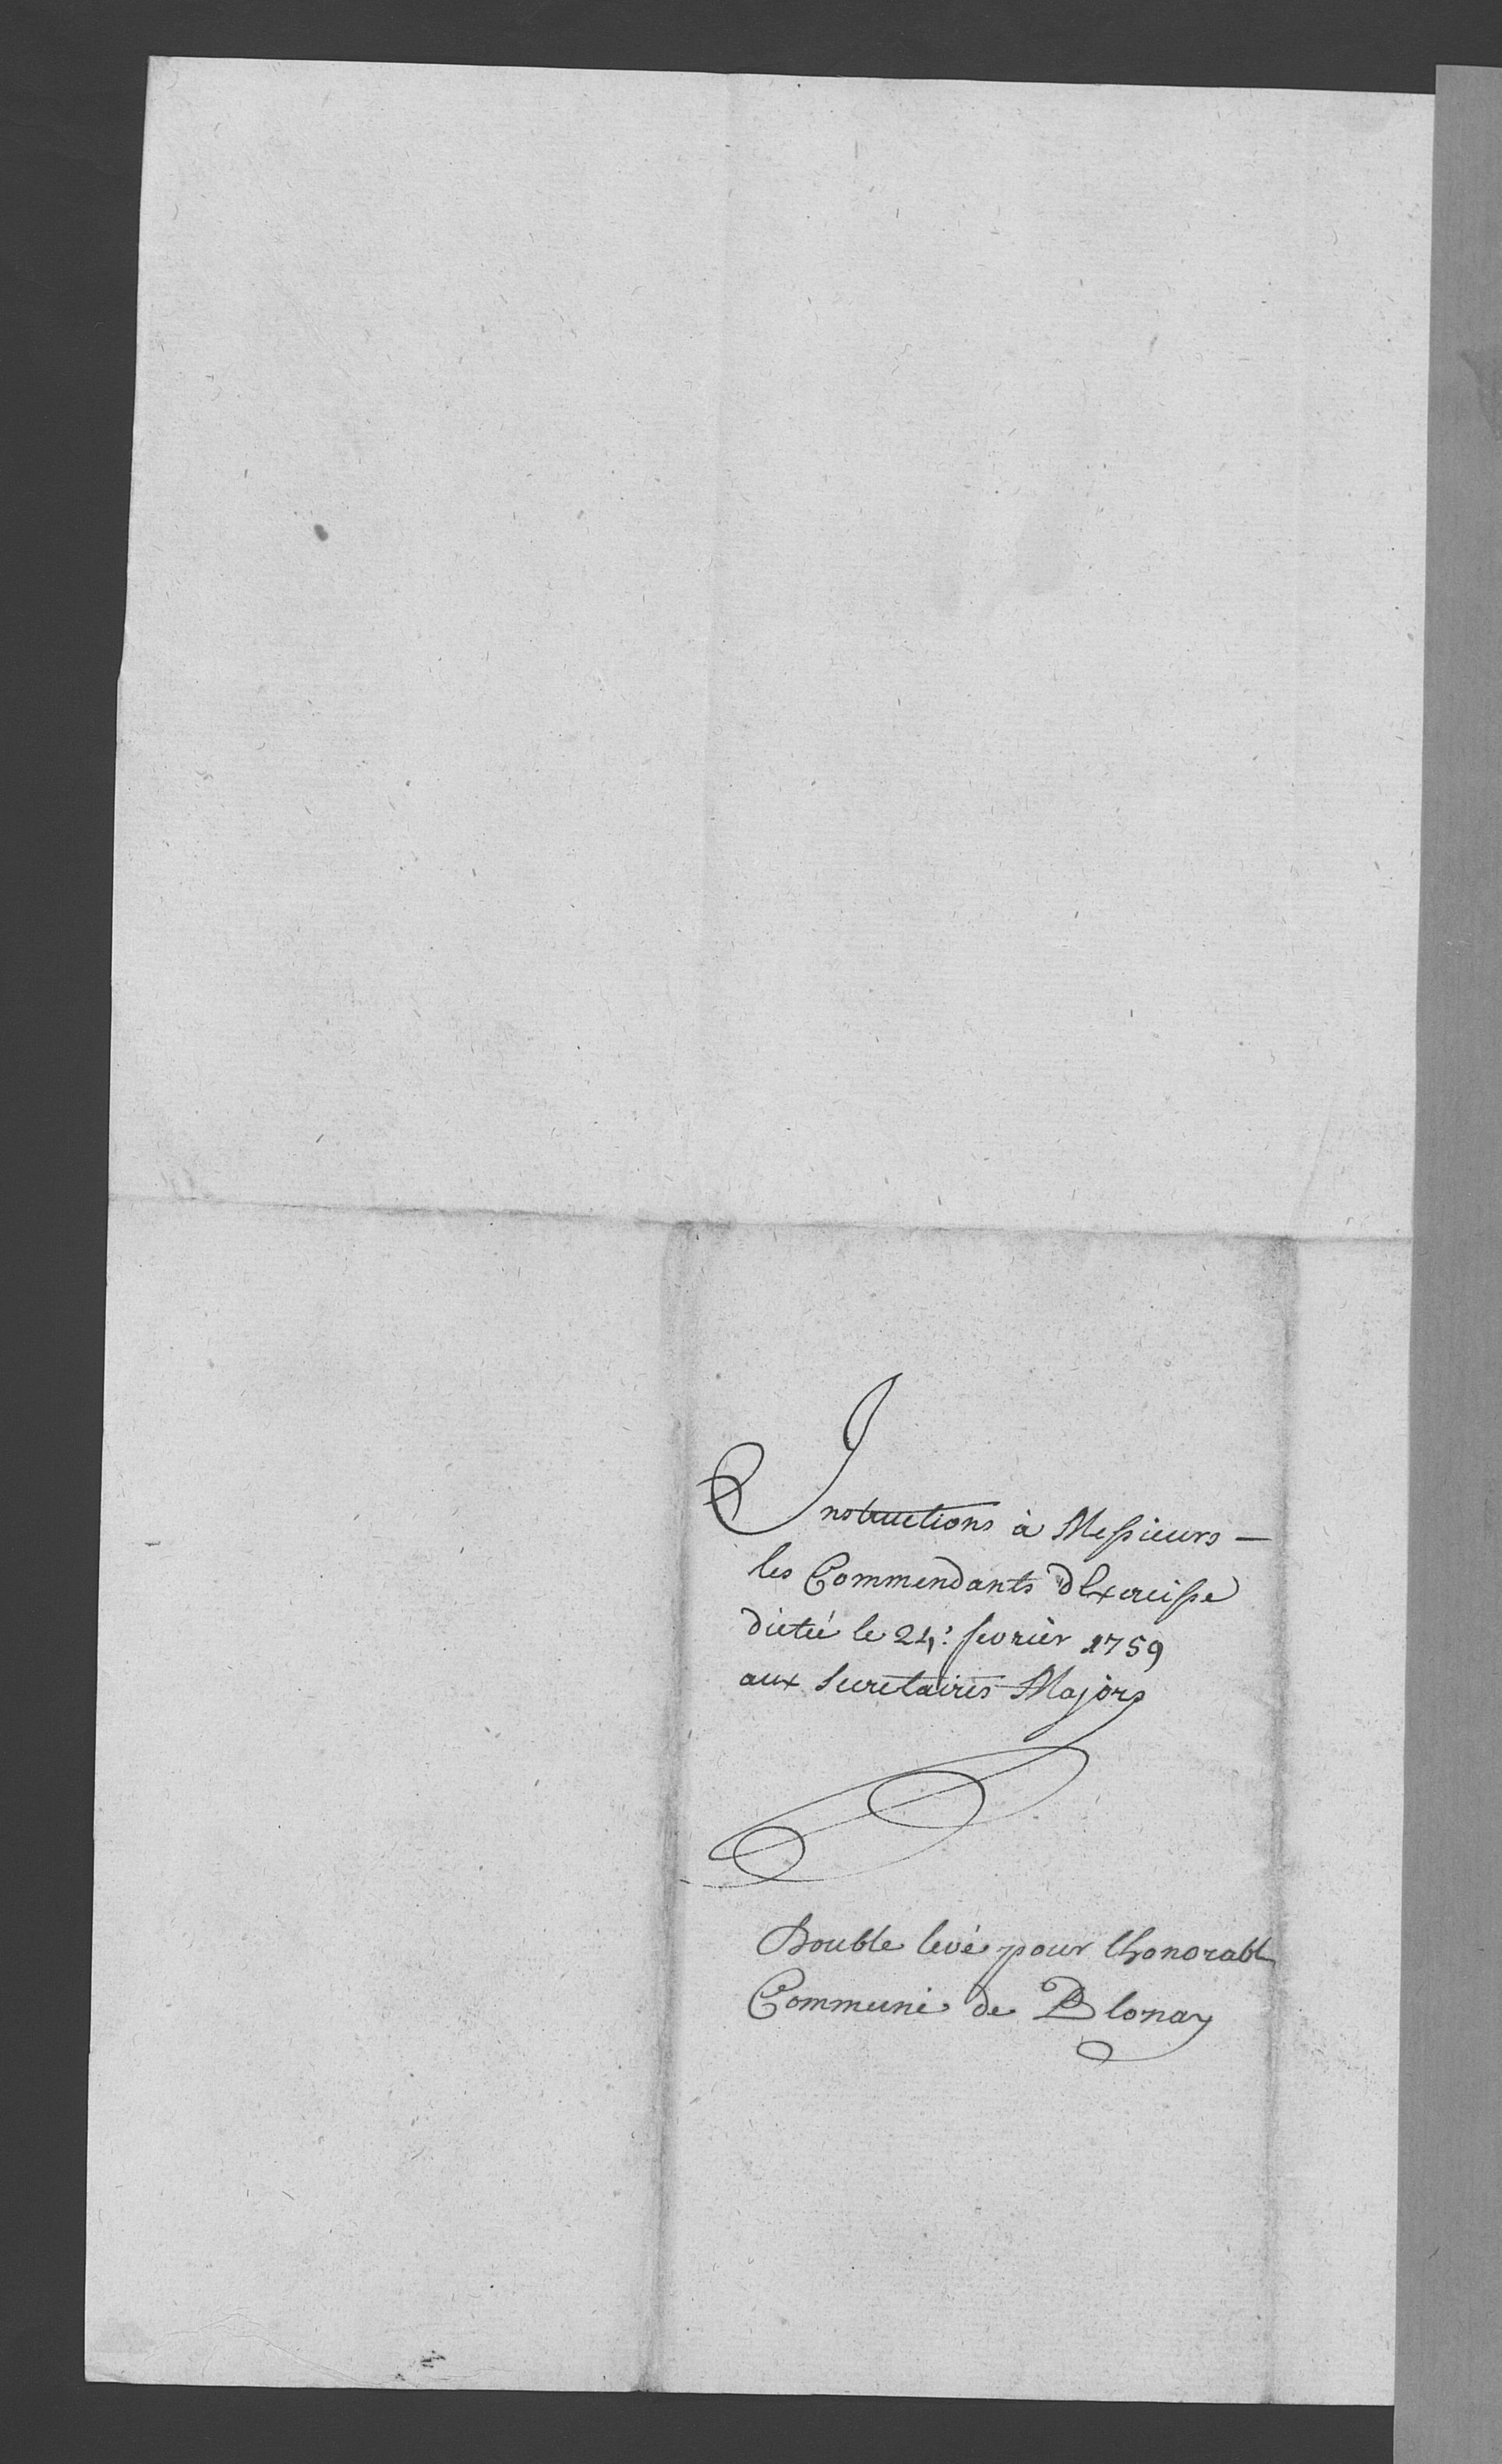 Instructions à Messieurs —
les Commendants d'Exercisse
dicteé le 24: fevrièr 1759
aux Secretaires Majors
Double levé pour Lhonorable
Commune de Blonay